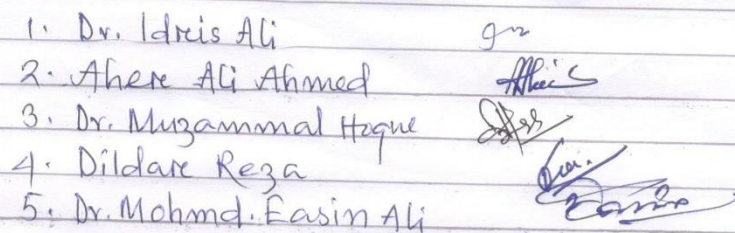 1. Dr. Idreis Ali
2. Ahere Ali Ahmed
3. Dr. Muzammal Hoque
4. Dildare Reza
5. Dr. Mohmd. Easin Ali